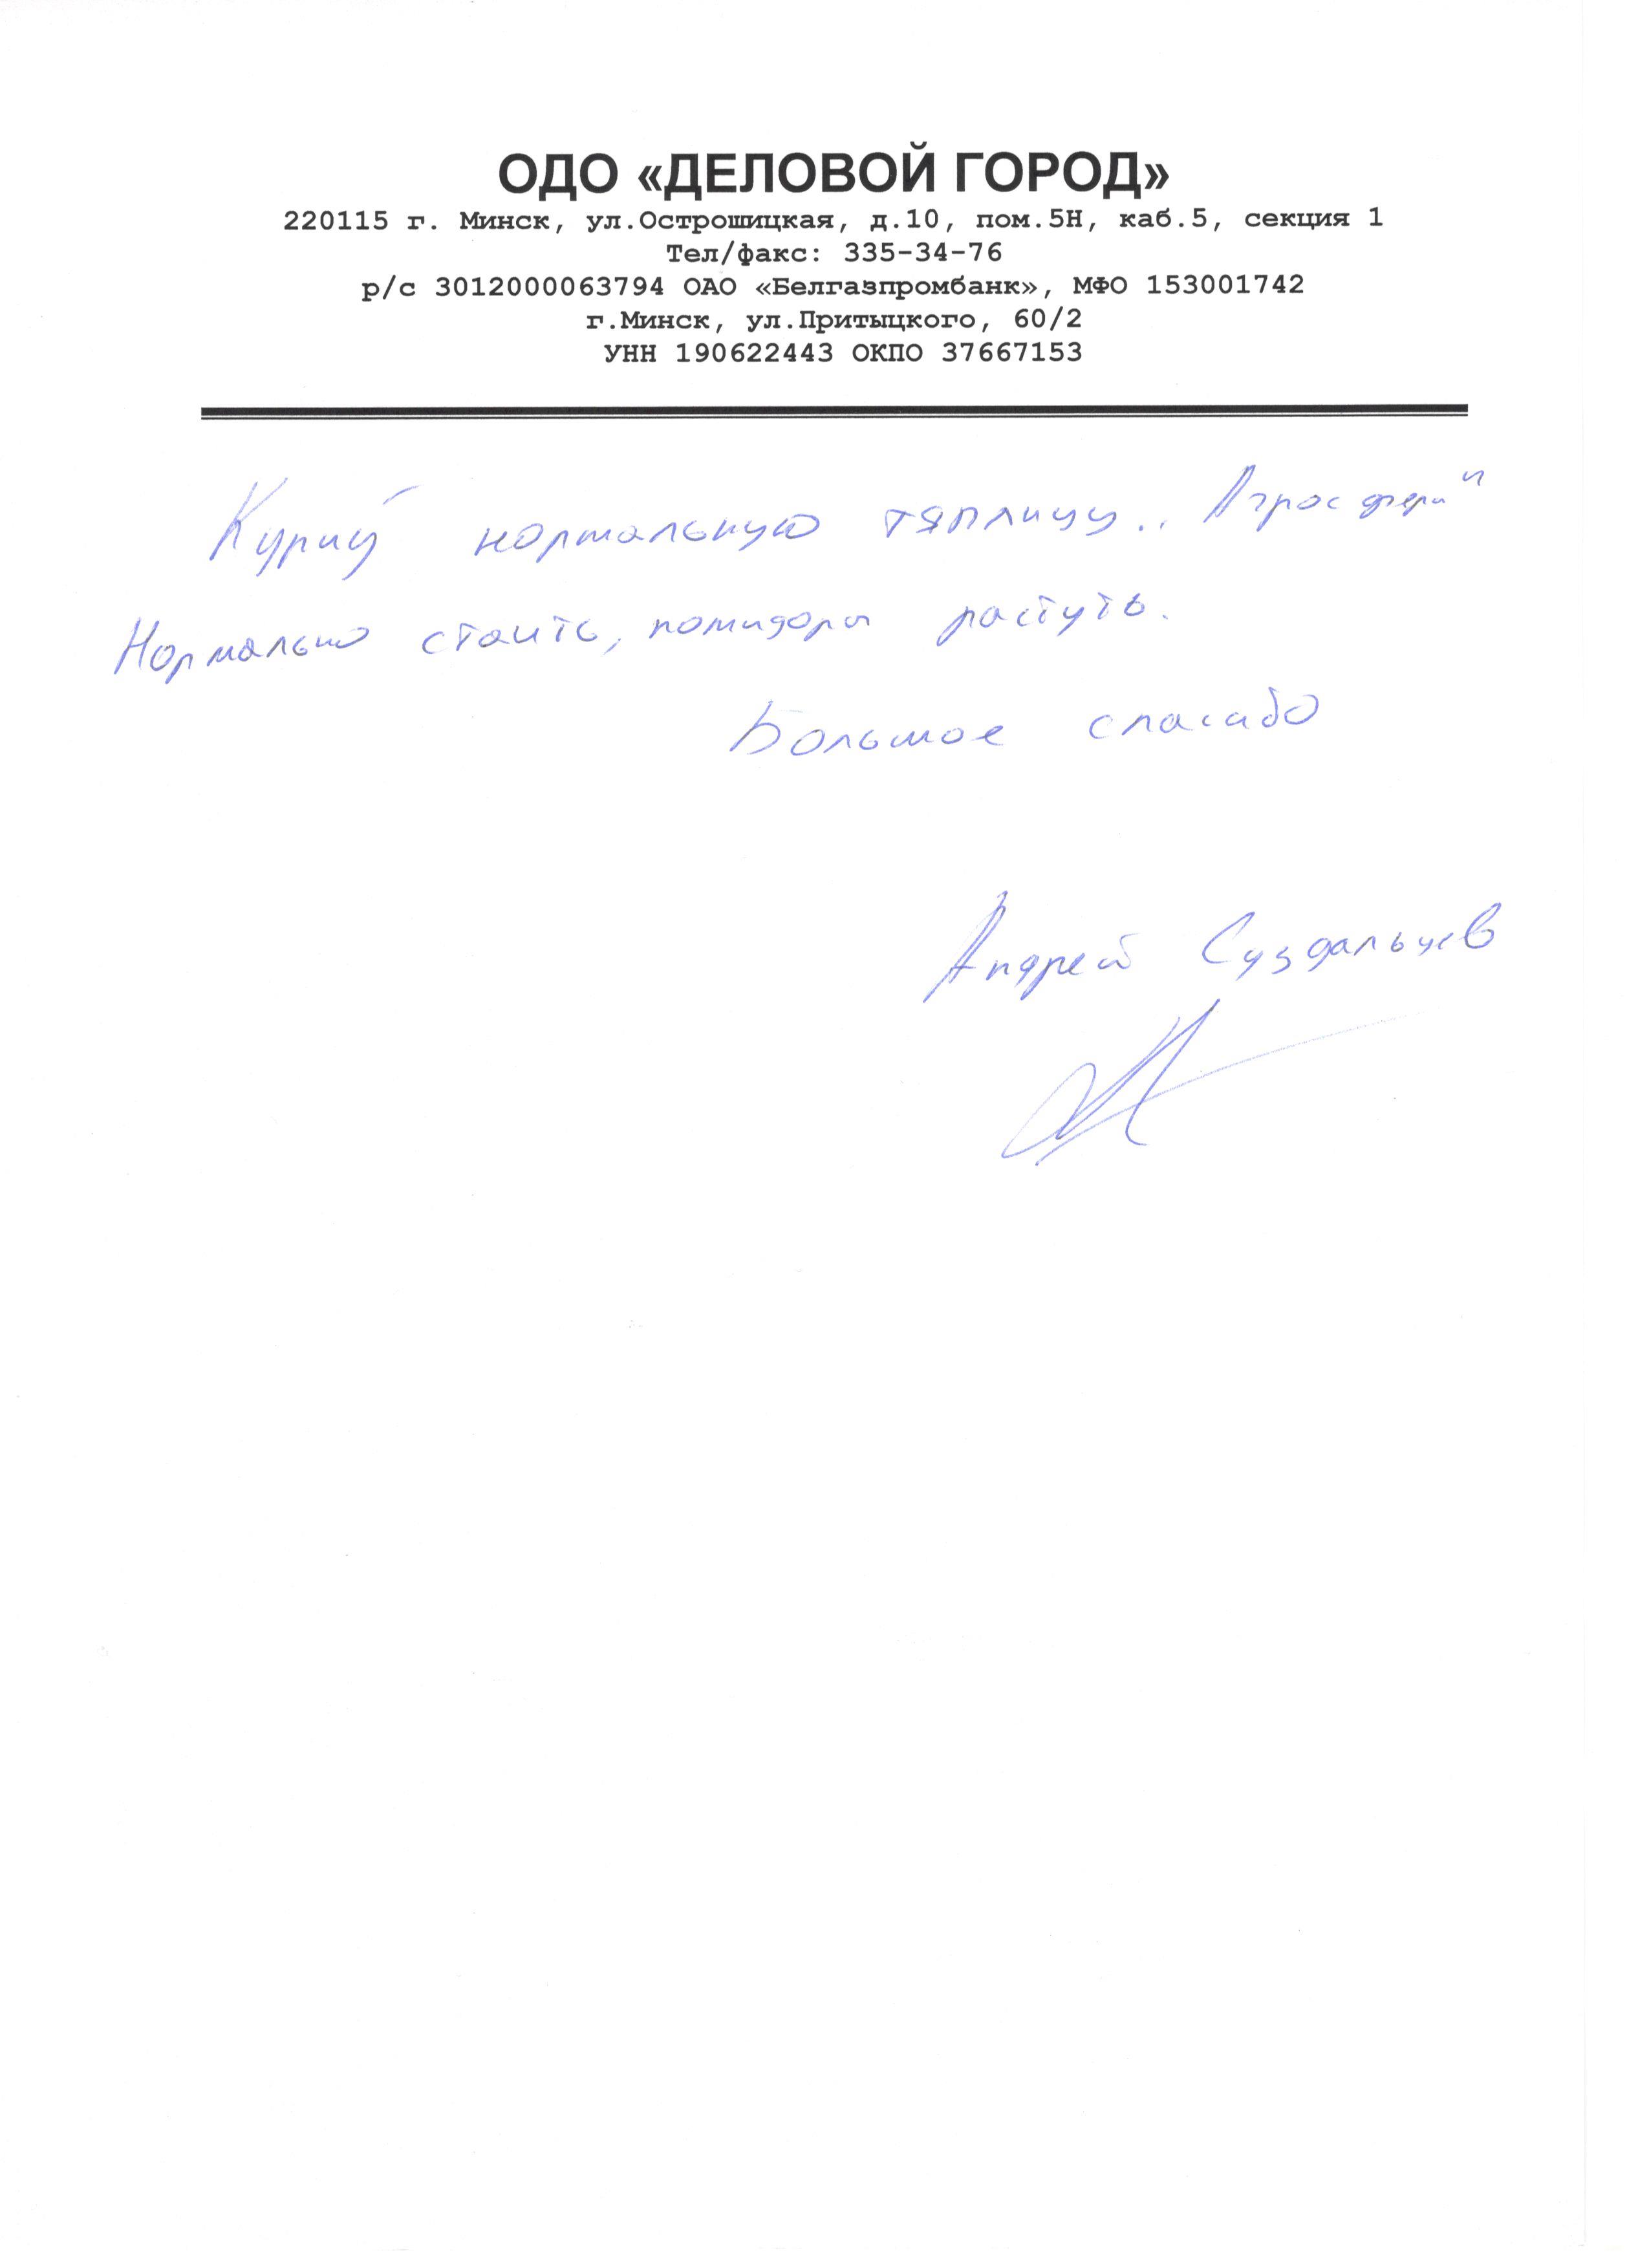 ОДО «ДЕЛОВОЙ ГОРОД»
220115 г. Минск, ул.Острошицкая, д.10, пом.5Н, каб.5, секция 1
Тел/факс: 335-34-76
р/с 3012000063794 ОАО «Белгазпромбанк», МФО 153001742
г.Минск, ул.Притыцкого, 60/2
УНН 190622443 ОКПО 37667153
нормальную тяплицу
Нормально стаить, помидоры растуть.
Большое спасибо
Андрей Суздальцев